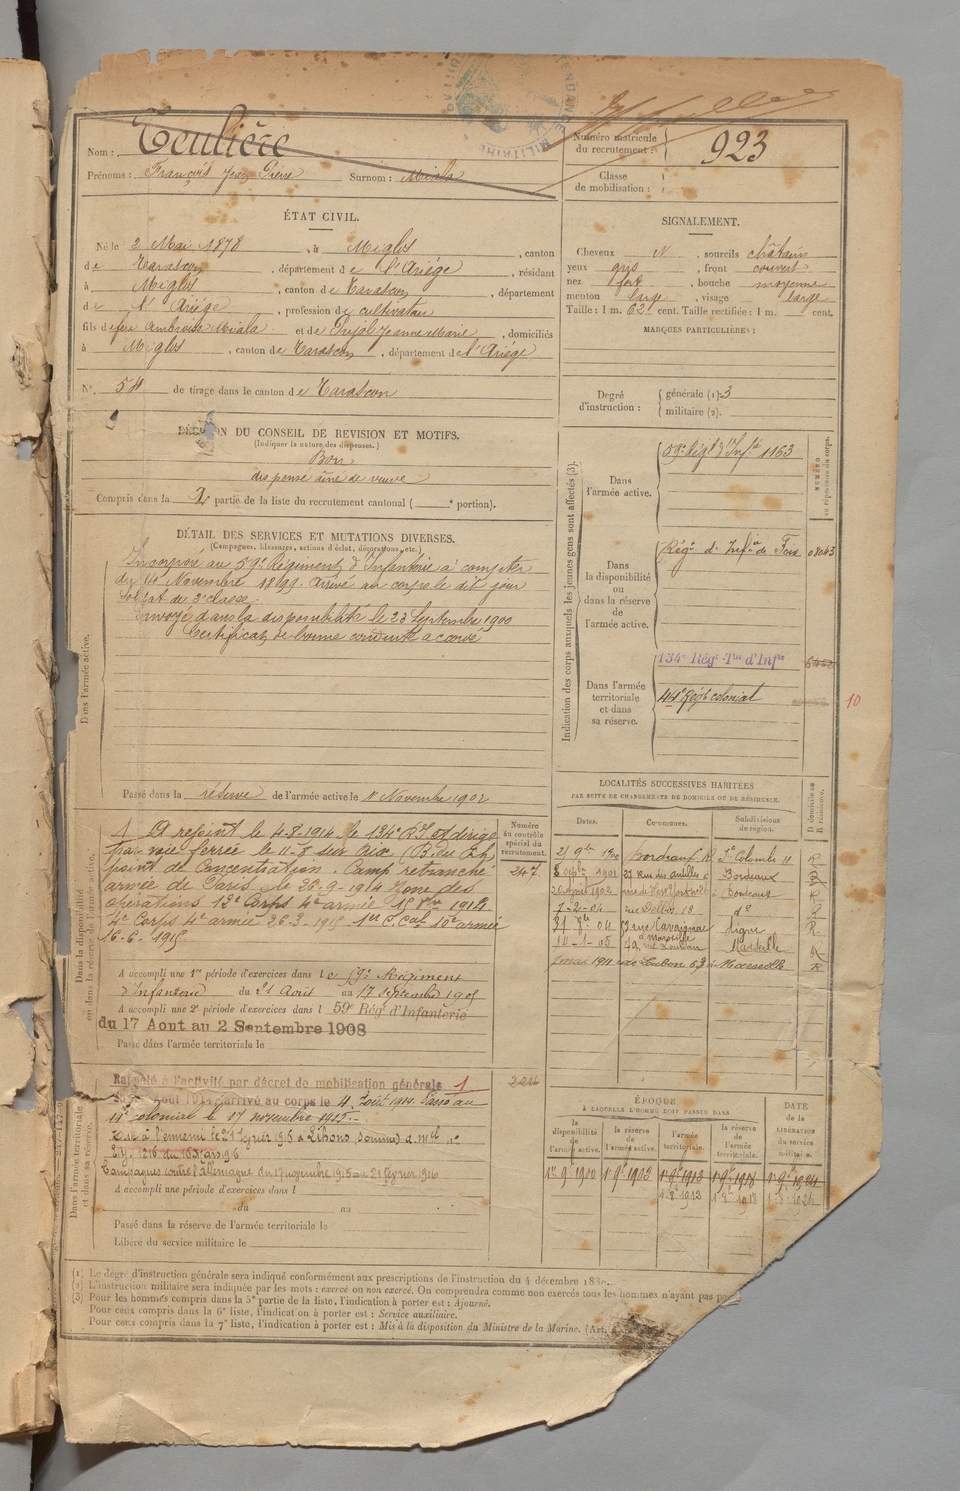 Nom : Teulière
Prénoms : François Jean Pierre Surnom : Miala
Numéro matricule du recrutement : 923
Classe de mobilisation :
ÉTAT CIVIL.
Né le 2 Mai 1878, à Miglos, canton
de Tarascon, département de l'Ariége, résidant
à Miglos, canton de Tarascon, département
de l'Ariége, profession de cultivateur
fils de feu Ambroise Miala et de Jeanne Marie, domiciliés
à Miglos, canton de Tarascon, département de l'Ariége
SIGNALEMENT.
Cheveux N, sourcils châtains
yeux gris, front couvert
nez fort, bouche moyenne
menton large, visage large
Taille : 1 m. 62 cent. Taille rectifiée : 1 m. cent.
MARQUES PARTICULIÈRES :
N° 54 de tirage dans le canton de Tarascon
Degré d'instruction : générale (1). 3
militaire (2).
DÉCISION DU CONSEIL DE REVISION ET MOTIFS.
(Indiquer la nature des dispenses.)
Bon
dispensé aîné de veuve
Compris dans la 2e partie de la liste du recrutement cantonal ( e portion).
DÉTAIL DES SERVICES ET MUTATIONS DIVERSES.
(Campagnes, blessures, actions d'éclat, décorations, etc.)
Dans l'armée active.
Incorporé au 59e Régiment d'Infanterie à compter
du 14 Novembre 1899. Arrivé au corps le dit jour
soldat de 2e classe.
Envoyé dans la disponibilité le 23 Septembre 1900
Certificat de bonne conduite accordé
Passé dans la réserve de l'armée active le 1 Novembre 1902
Indication des corps auxquels les jeunes gens sont affectés (3).
NUMÉRO au répertoire du corps.
Dans l'armée active.
59e Régt d'Infie 1163
Dans la disponibilité ou dans la réserve de l'armée active.
Régt d'Infie de Foix
Dans l'armée territoriale et dans sa réserve.
134e Régt Tal d'Infie
44e Régt colonial
10
LOCALITÉS SUCCESSIVES HABITÉES
PAR SUITE DE CHANGEMENTS DE DOMICILE OU DE RÉSIDENCE.
Dates. Communes. Subdivisions de région. D domicile ou R résidence.
Bordeaux R. Ste Colombe 11 R
8 1901 27 rue des Bordeaux
1902 Bordeaux
7-2-04 rue 18 do
04 3 rue Cavaignac R
10-1-05 à Marseille Marseille R
1911 63 à Marseille R
Dans la disponibilité ou dans la réserve de l'armée active.
Numéro au contrôle spécial du recrutement.
247
1 A rejoint le 4-8-1914 le 134e R.I. et dirigé
par voie ferrée le 11-8 sur
point de Concentration. Camp retranché
armée de Paris le 28-9-1914 Zone des
opérations 13e Corps 4e armée 1914
4e Corps 4e armée 26-3-1915 1er C. Cal 10e armée
16-6-1915
A accompli une 1re période d'exercices dans le 59e Régiment
d'Infanterie du 21 Août au 17 septembre 1905
A accompli une 2e période d'exercices dans l 59e Régt d'Infanterie
du 17 Aout au 2 Septembre 1908
Passé dans l'armée territoriale le
Dans l'armée territoriale et dans sa réserve.
Rappelé à l'activité par décret de mobilisation générale 1
Août 1914, arrivé au corps le 4 Août 1914. Passé au
colonial le 17 novembre 1915.
Tué à l'ennemi le 21 Février 1916 à Lihons (Somme)
Campagnes contre l'Allemagne du 1915 au 21 février 1916
A accompli une période d'exercices dans l
du au
Passé dans la réserve de l'armée territoriale le
Libéré du service militaire le
ÉPOQUE
À LAQUELLE L'HOMME DOIT PASSER DANS
DATE de la LIBÉRATION du service militaire.
la disponibilité de l'armée active. la réserve de l'armée active. l'armée territoriale. la réserve de l'armée territoriale.
1er 9bre 1900 1er 9bre 1903 1er 9bre 1913 1er 9bre 1918 1er 9bre 1924
1913 1918 1924
(1) Le degré d'instruction générale sera indiqué conformément aux prescriptions de l'instruction du 4 décembre
(2) L'instruction militaire sera indiquée par les mots : exercé ou non exercé. On comprendra comme non exercés tous les hommes n'ayant pas
(3) Pour les hommes compris dans la 5e partie de la liste, l'indication à porter est : Ajourné.
Pour ceux compris dans la 6e liste, l'indication à porter est : Service auxiliaire.
Pour ceux compris dans la 7e liste, l'indication à porter est : Mis à la disposition du Ministre de la Marine. (Art.